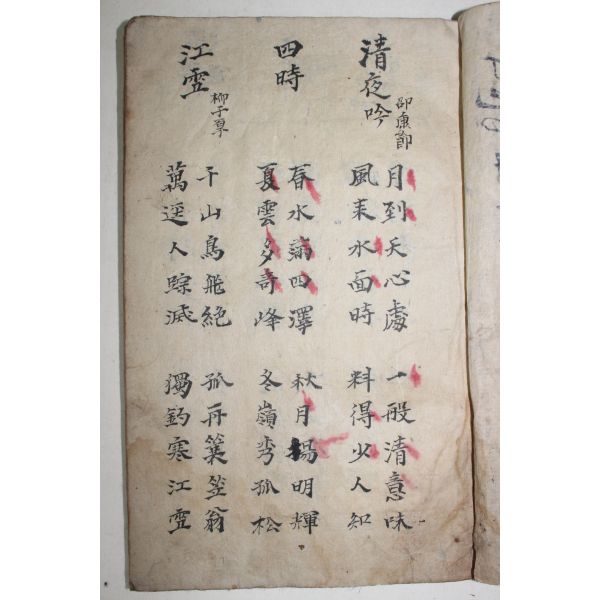 清夜吟 邵康節
月到天心處 一般清意味
風来水面時 料得少人知
四時
春水滿四澤 秋月揚明輝
夏雲多奇峰 冬嶺秀孤松
江雪 柳子厚
千山鳥飛絶 孤舟簑笠翁
萬逕人踪滅 獨釣寒江雪